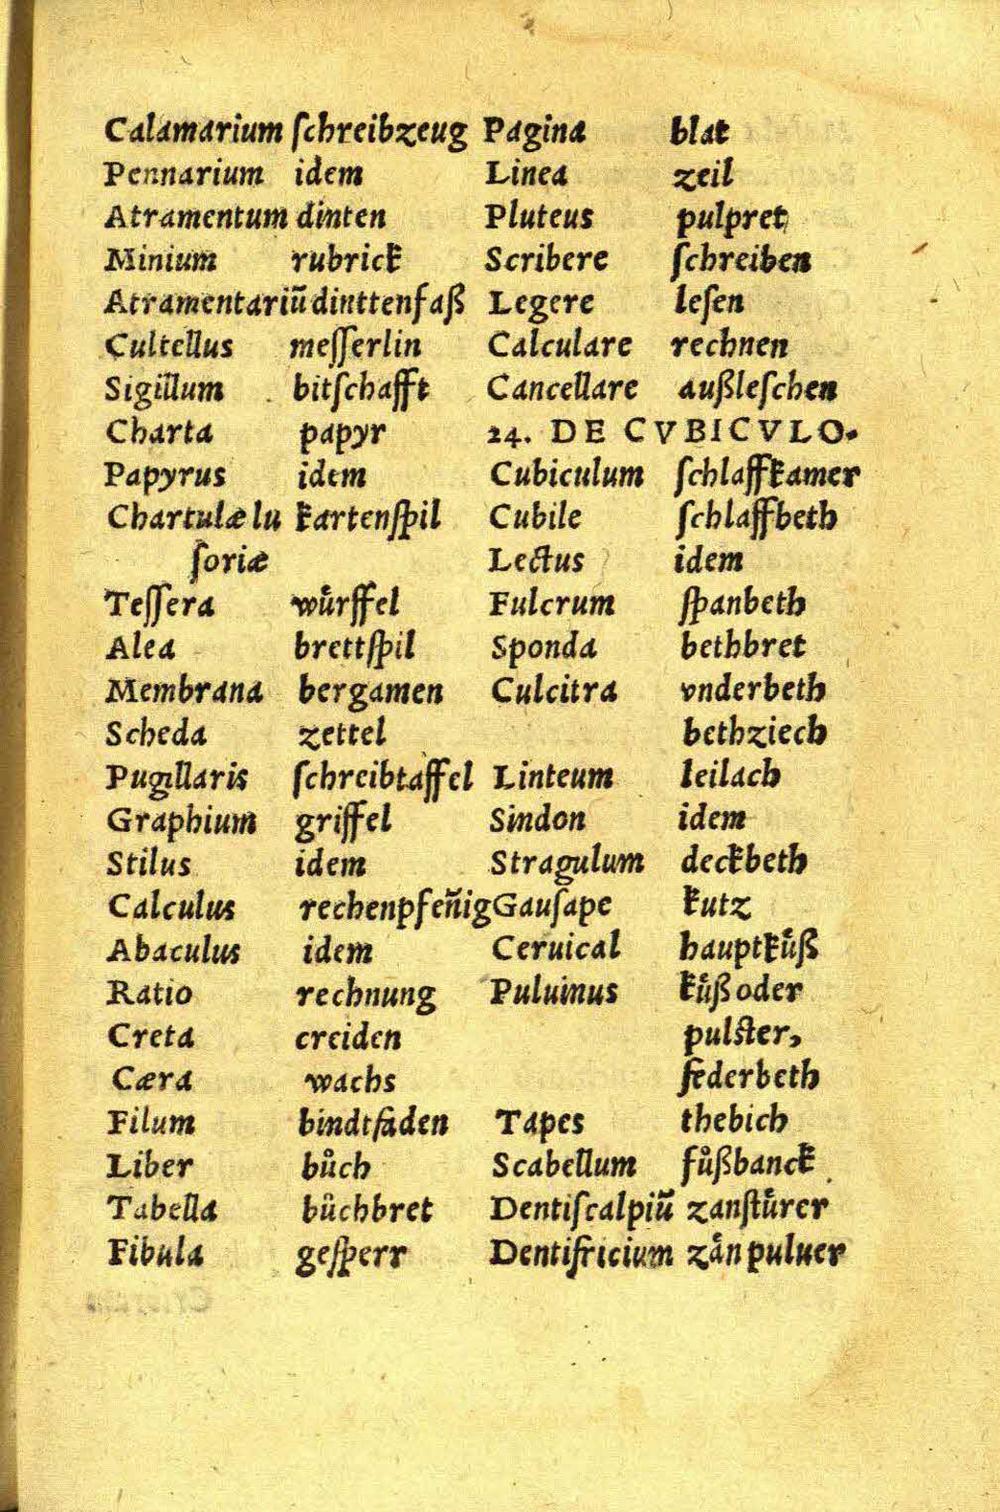 Calamarium ſchreibzeug
Pennarium idem
Atramentum dinten
Minium rubrick
Atramentariũ dinttenfaß
Cultellus meſſerlin
Sigillum bitſchafft
Charta papyr
Papyrus idem
Chartulæ lu kartenſpil
ſoriæ
Teſſera wuͤrffel
Alea brettſpil
Membrana bergamen
Scheda zettel
Pugillaris ſchreibtaffel
Graphium griffel
Stilus idem
Calculus rechenpfeñig
Abaculus idem
Ratio rechnung
Creta creiden
Cæra wachs
Filum bindtfaden
Liber buͦch
Tabella buͤchbret
Fibula geſperr
Pagina blat
Linea zeil
Pluteus pulpret
Scribere ſchreiben
Legere leſen
Calculare rechnen
Cancellare außleſchen
24. DE CVBICVLO.
Cubiculum ſchlaffkamer
Cubile ſchlaffbeth
Lectus idem
Fulcrum ſpanbeth
Sponda bethbret
Culcitra vnderbeth
bethziech
Linteum leilach
Sindon idem
Stragulum deckbeth
Gauſape kutz
Ceruical hauptkuͤß
Puluinus kuͤß oder
pulſter,
federbeth
Tapes thebich
Scabellum fuͦßbanck
Dentiſcalpiũ zanſtuͤrer
Dentifricium zaͤnpuluer